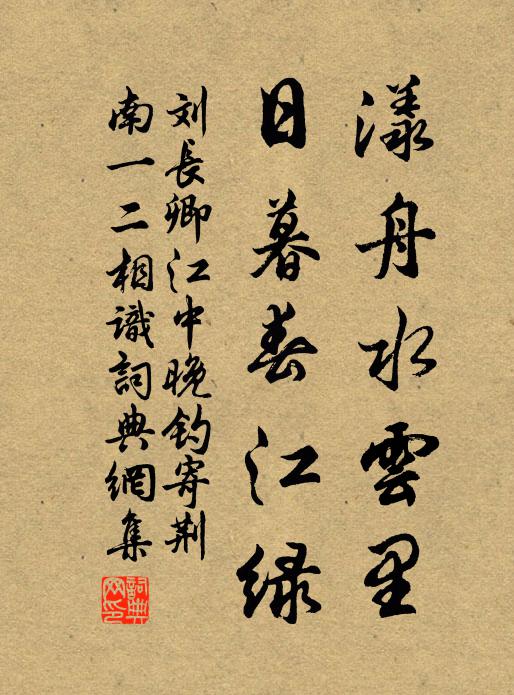 漾舟水雲里
日暮春江绿
刘長卿江中晚钓寄荆
南一二相識詞典網集
詞典
网印